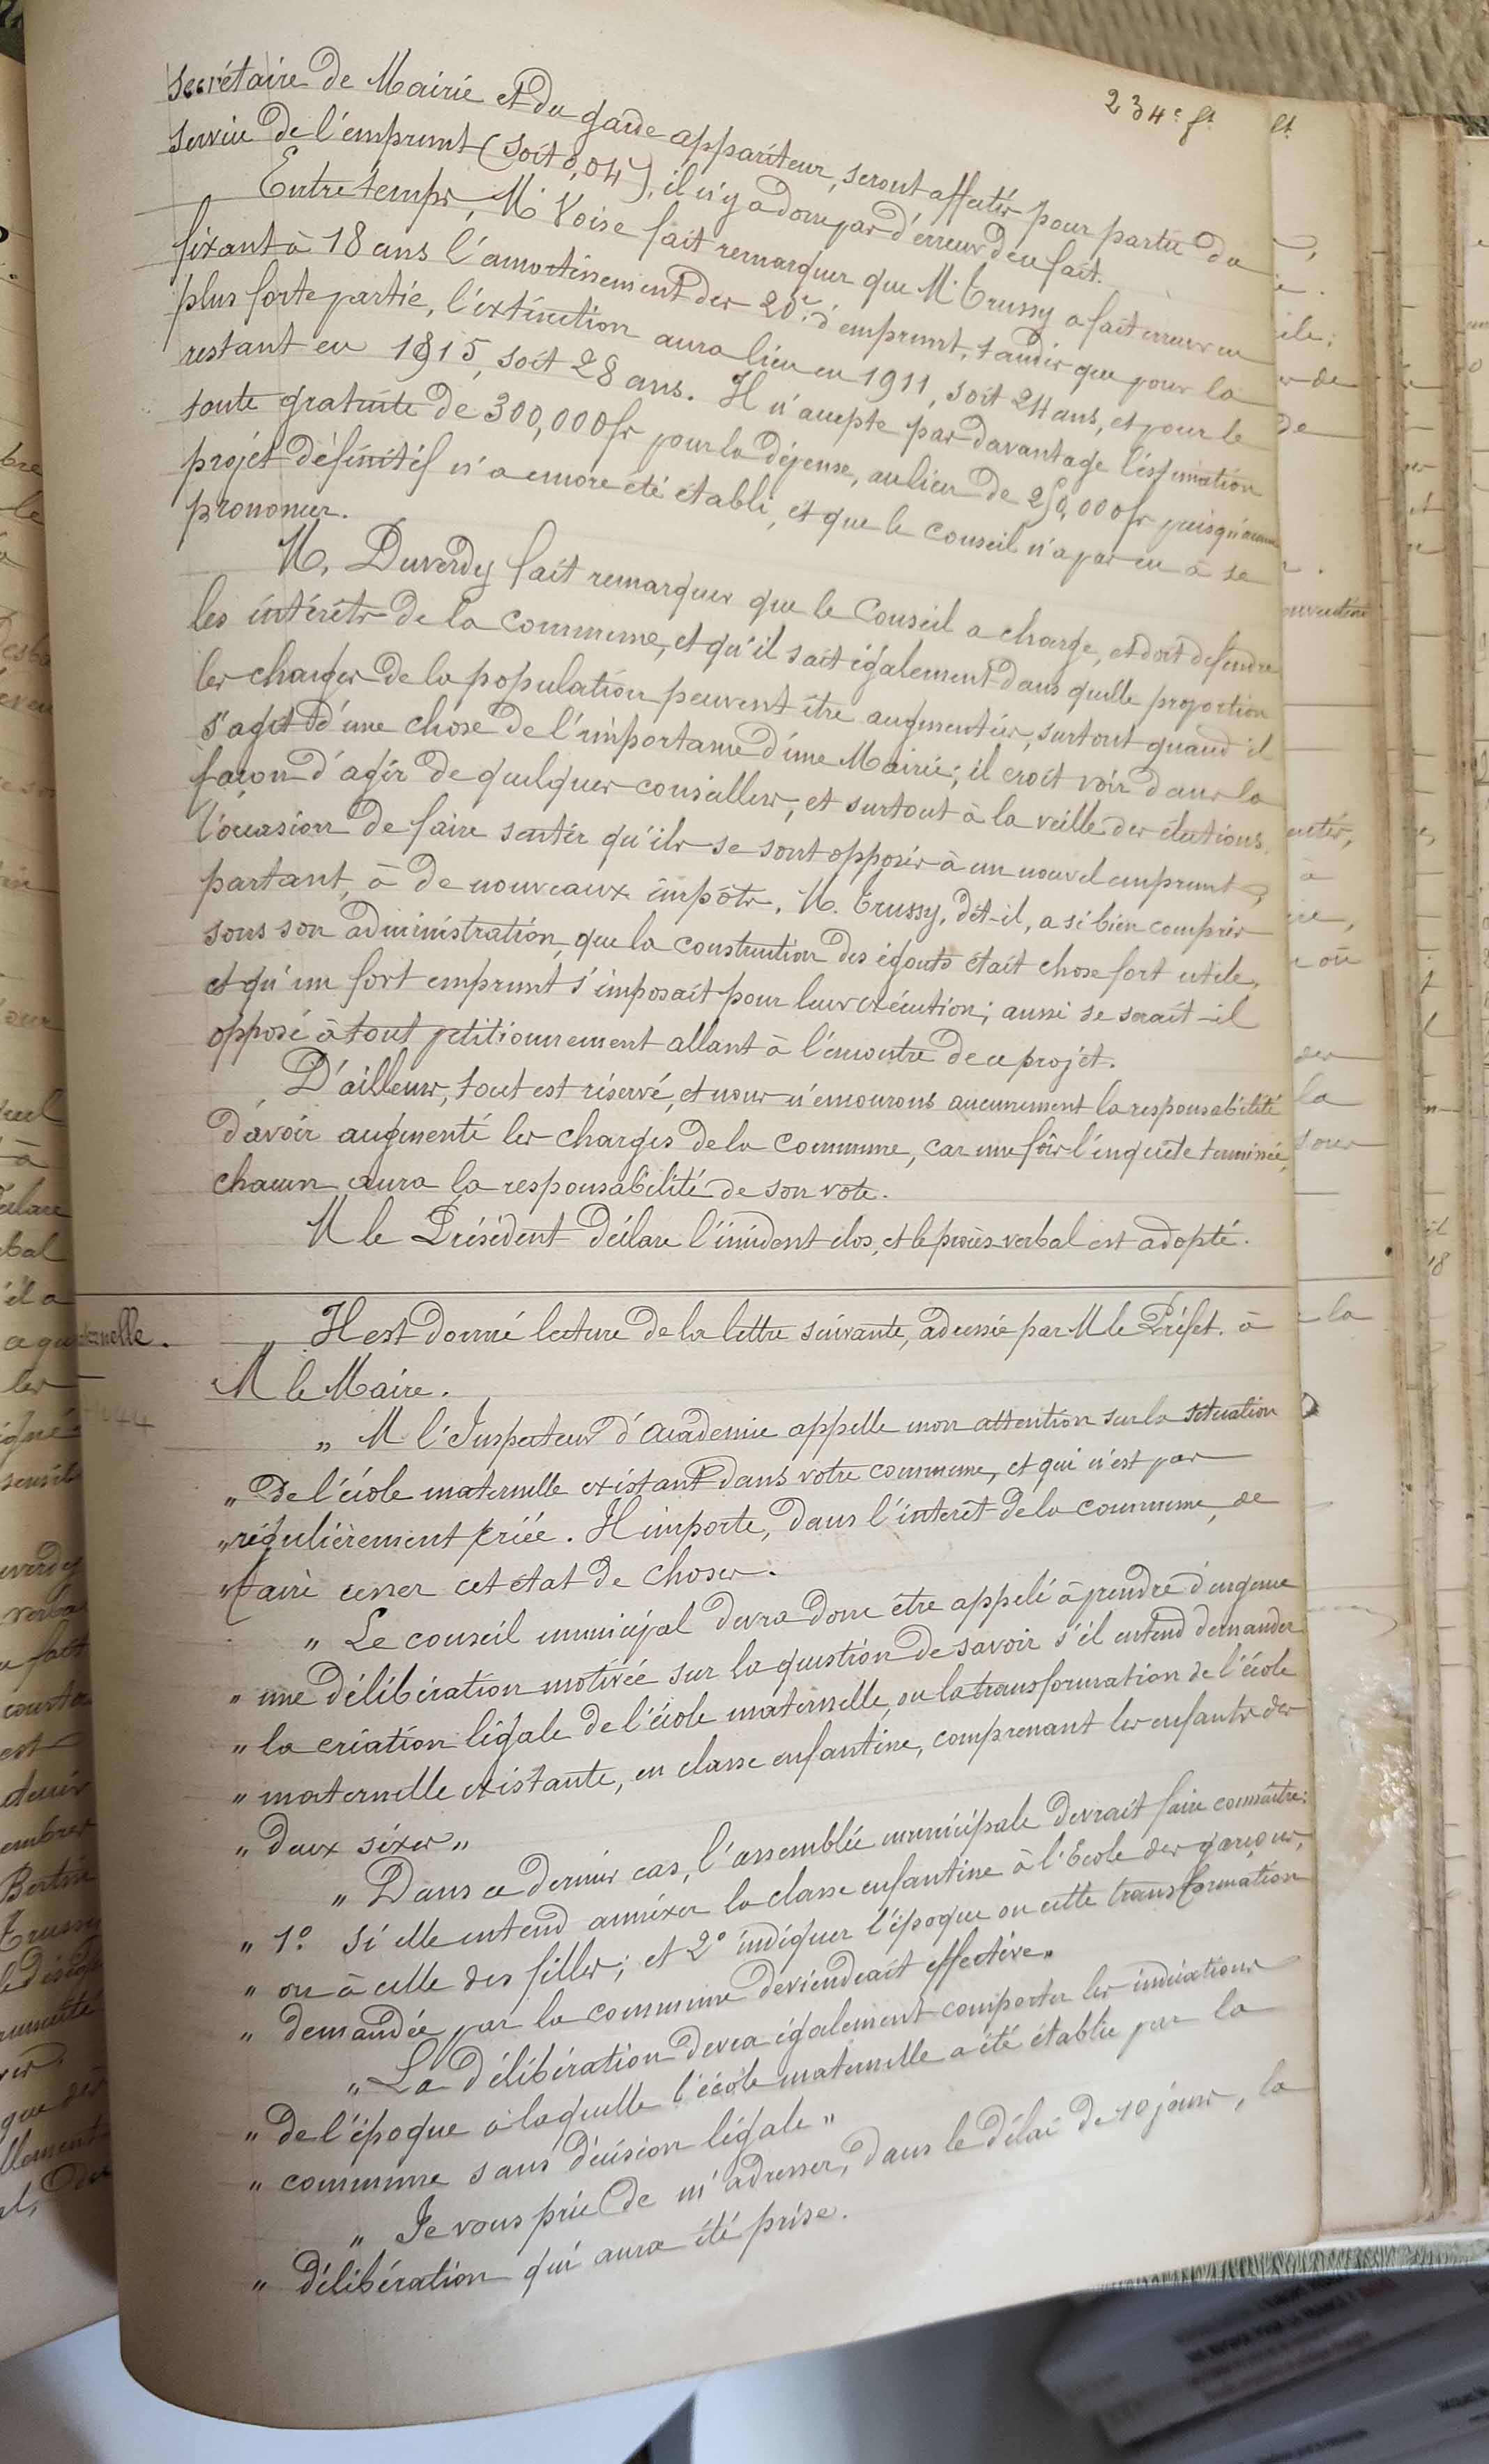 234e ft
secrétaire de Mairie et du garde appariteur, seront affectés pour partie du
service de l'emprunt (soit 0,04), il n'y a donc pas d'erreur de ce fait.
Entre temps, M. Voise fait remarquer que M. Trussy a fait erreur en
fixant à 18 ans l'amortissement des 20c. d'emprunt, tandis que pour la
plus forte partie, l'extinction aura lieu en 1911, soit 24 ans, et pour le
restant en 1915, soit 28 ans. Il n'accepte pas davantage l'estimation
toute gratuite de 300,000 fr pour la dépense, au lieu de 250,000 fr puisqu'aucun
projet définitif n'a encore été établi, et que le Conseil n'a pas eu à se
prononcer.
M. Duverdy fait remarquer que le Conseil a charge, et doit défendre
les intérêts de la commune, et qu'il sait également dans quelle proportion
les charges de la population peuvent être augmentées, surtout quand il
s'agit d'une chose de l'importance d'une Mairie; il croit voir dans la
façon d'agir de quelques conseillers, et surtout à la veille des élections,
l'occasion de faire sentir qu'ils se sont opposés à un nouvel emprunt,
partant, à de nouveaux impôts. M. Trussy, dit-il, a si bien compris
sous son administration, que la construction des égouts était chose fort utile,
et qu'un fort emprunt s'imposait pour leur exécution; aussi se serait-il
opposé à tout pétitionnement allant à l'encontre de ce projet.
D'ailleurs, tout est réservé, et nous n'encourons aucunement la responsabilité
d'avoir augmenté les charges de la commune, car une fois l'enquête terminée,
chacun aura la responsabilité de son vote.
M le Président déclare l'incident clos, et le procès-verbal est adopté.
Il est donné lecture de la lettre suivante, adressée par M le Préfet. à
M le Maire.
" M l'Inspecteur d'Académie appelle mon attention sur la situation
" de l'école maternelle existant dans votre commune, et qui n'est pas
" régulièrement créée. Il importe, dans l'intérêt de la commune, de
" faire cesser cet état de choses.
" Le conseil municipal devra donc être appelé à prendre d'urgence
" une délibération motivée sur la question de savoir s'il entend demander
" la création légale de l'école maternelle, ou la transformation de l'école
" maternelle existante, en classe enfantine, comprenant les enfants des
" deux sexes "
" Dans ce dernier cas, l'assemblée municipale devrait faire connaître:
" 1° Si elle entend annexer la classe enfantine à l'Ecole des garçons,
" ou à celle des filles; et 2° indiquer l'époque ou cette transformation
" demandée par la commune deviendrait effective "
" La délibération devra également comporter les indications
" de l'époque à laquelle l'école maternelle a été établie par la
" commune sans décision légale "
" Je vous prie de m'adresser, dans le délai de 10 jours, la
" délibération qui aura été prise.